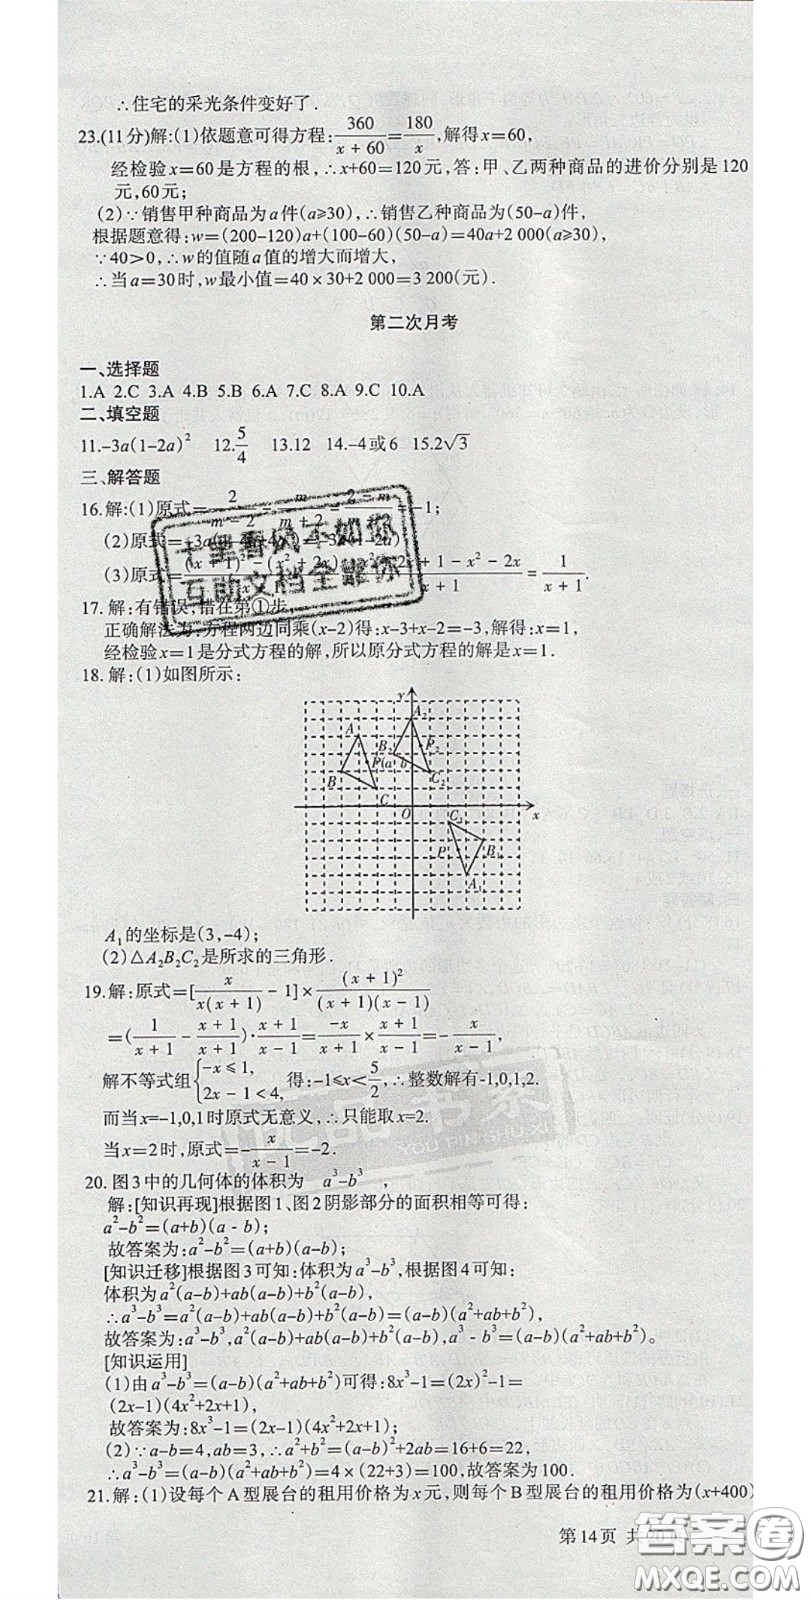 ∴住宅的采光条件变好了.
23.(11分)解:(1)依题意可得方程:360/(x+60)=180/x,解得x=60,
经检验x=60是方程的根,∴x+60=120元,答:甲、乙两种商品的进价分别是120
元,60元;
(2)∵销售甲种商品为a件(a≥30),∴销售乙种商品为(50-a)件,
根据题意得:w=(200-120)a+(100-60)(50-a)=40a+2 000(a≥30),
∵40>0,∴w的值随a值的增大而增大,
∴当a=30时,w最小值=40×30+2 000=3 200(元).
第二次月考
一、选择题
1.A 2.C 3.A 4.B 5.B 6.A 7.C 8.A 9.C 10.A
二、填空题
11.-3a(1-2a)² 12.5/4 13.12 14.-4或6 15.2√3
三、解答题
16.解:(1)原式=2/(m-2) m/(m+2) =-1;
(2)原式=
(3)原式= 2x+1-x²-2x/(x+1)=1/(x+1).
17.解:有错误;错在第①步,
正确解法为:方程两边同乘(x-2)得:x-3+x-2=-3,解得:x=1,
经检验x=1是分式方程的解,所以原分式方程的解是x=1.
18.解:(1)如图所示:
y
A₂
A
B₂ P₂
P(a b
B C₂
C
O x
C₁
P B₁
A₁
A₁的坐标是(3,-4);
(2)△A₂B₂C₂是所求的三角形.
19.解:原式=[x/(x(x+1))-1]×(x+1)²/((x+1)(x-1))
=(1/(x+1)-(x+1)/(x+1))·(x+1)/(x-1)=-x/(x+1)×(x+1)/(x-1)=-x/(x-1),
解不等式组{-x≤1, 2x-1<4, 得:-1≤x<5/2,∴整数解有-1,0,1,2.
而当x=-1,0,1时原式无意义,∴只能取x=2.
当x=2时,原式=-x/(x-1)=-2.
20.图3中的几何体的体积为 a³-b³ ,
解:[知识再现]根据图1、图2阴影部分的面积相等可得:
a²-b²=(a+b)(a-b);
故答案为:a²-b²=(a+b)(a-b);
[知识迁移]根据图3可知:体积为a³-b³,根据图4可知:
体积为a²(a-b)+ab(a-b)+b²(a-b),
∴a³-b³=a²(a-b)+ab(a-b)+b²(a-b)=(a-b)(a²+ab+b²),
故答案为:a³-b³,a²(a-b)+ab(a-b)+b²(a-b),a³-b³=(a-b)(a²+ab+b²)。
[知识运用]
(1)由a³-b³=(a-b)(a²+ab+b²)可得:8x³-1=(2x)³-1=
(2x-1)(4x²+2x+1),
故答案为:8x³-1=(2x-1)(4x²+2x+1);
(2)∵a-b=4,ab=3,∴a²+b²=(a-b)²+2ab=16+6=22,
∴a³-b³=(a-b)(a²+ab+b²)=4×(22+3)=100,故答案为100.
21.解:(1)设每个A型展台的租用价格为x元,则每个B型展台的租用价格为(x+400)
第14页 共20页
十里春风不如你
互助文档全靠你
优品书案
YOU PIN SHU XI
答案圈
MXQE.COM